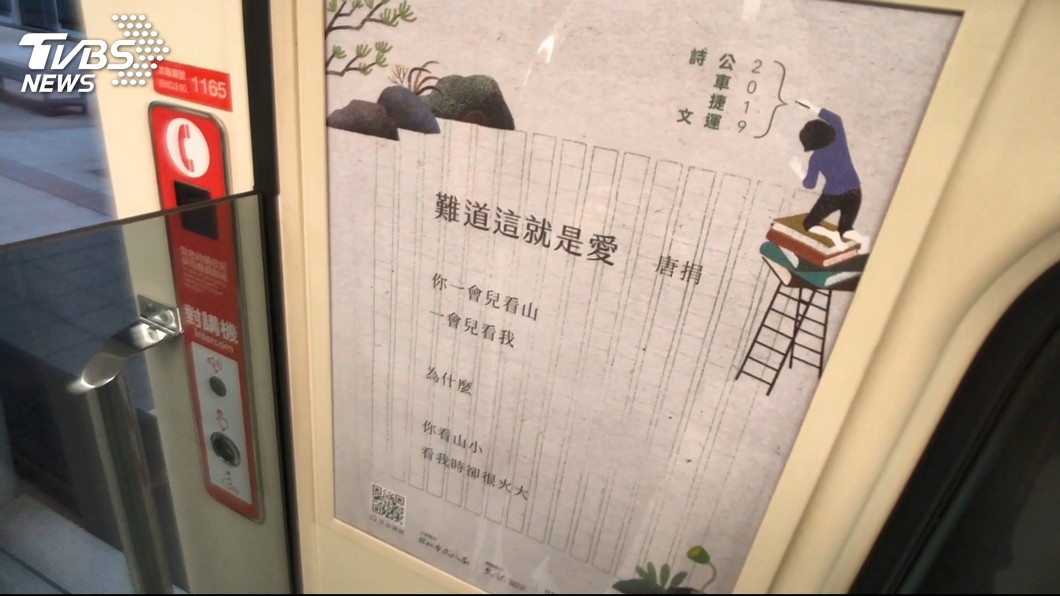 TVBS
NEWS
1165
對講機
Intercom
2019
公車捷運
詩文
難道這就是愛
唐捐
你一會兒看山
一會兒看我
為什麼
你看山小
看我時卻很火大